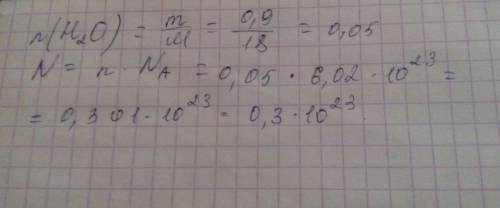 n(H₂O) = m/M = 0,9/18 = 0,05
N = n · N_A = 0,05 · 6,02 · 10²³ =
= 0,301 · 10²³ = 0,3 · 10²³